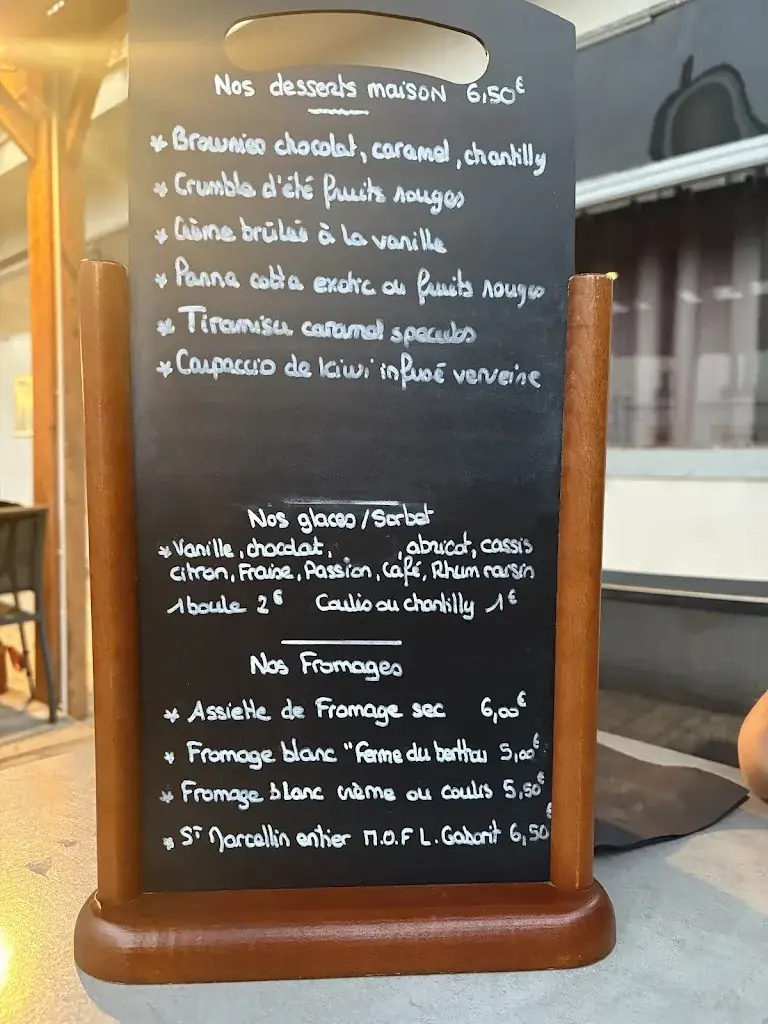 Nos desserts maison 6,50€
* Brownies chocolat, caramel, chantilly
* Crumble d'été fruits rouges
* Crème brûlée à la vanille
* Panna cotta exotic ou fruits rouges
* Tiramisu caramel speculos
* Carpaccio de kiwi infusé verveine
Nos glaces / Sorbet
* Vanille, chocolat, , abricot, cassis
citron, Fraise, Passion, Café, Rhum raisin
1 boule 2€ Coulis ou chantilly 1€
Nos Fromages
* Assiette de Fromage sec 6,00€
* Fromage blanc "Ferme du berthou 5,00€
* Fromage blanc crème ou coulis 5,50€
* St Marcellin entier M.O.F L. Gaborit 6,50€